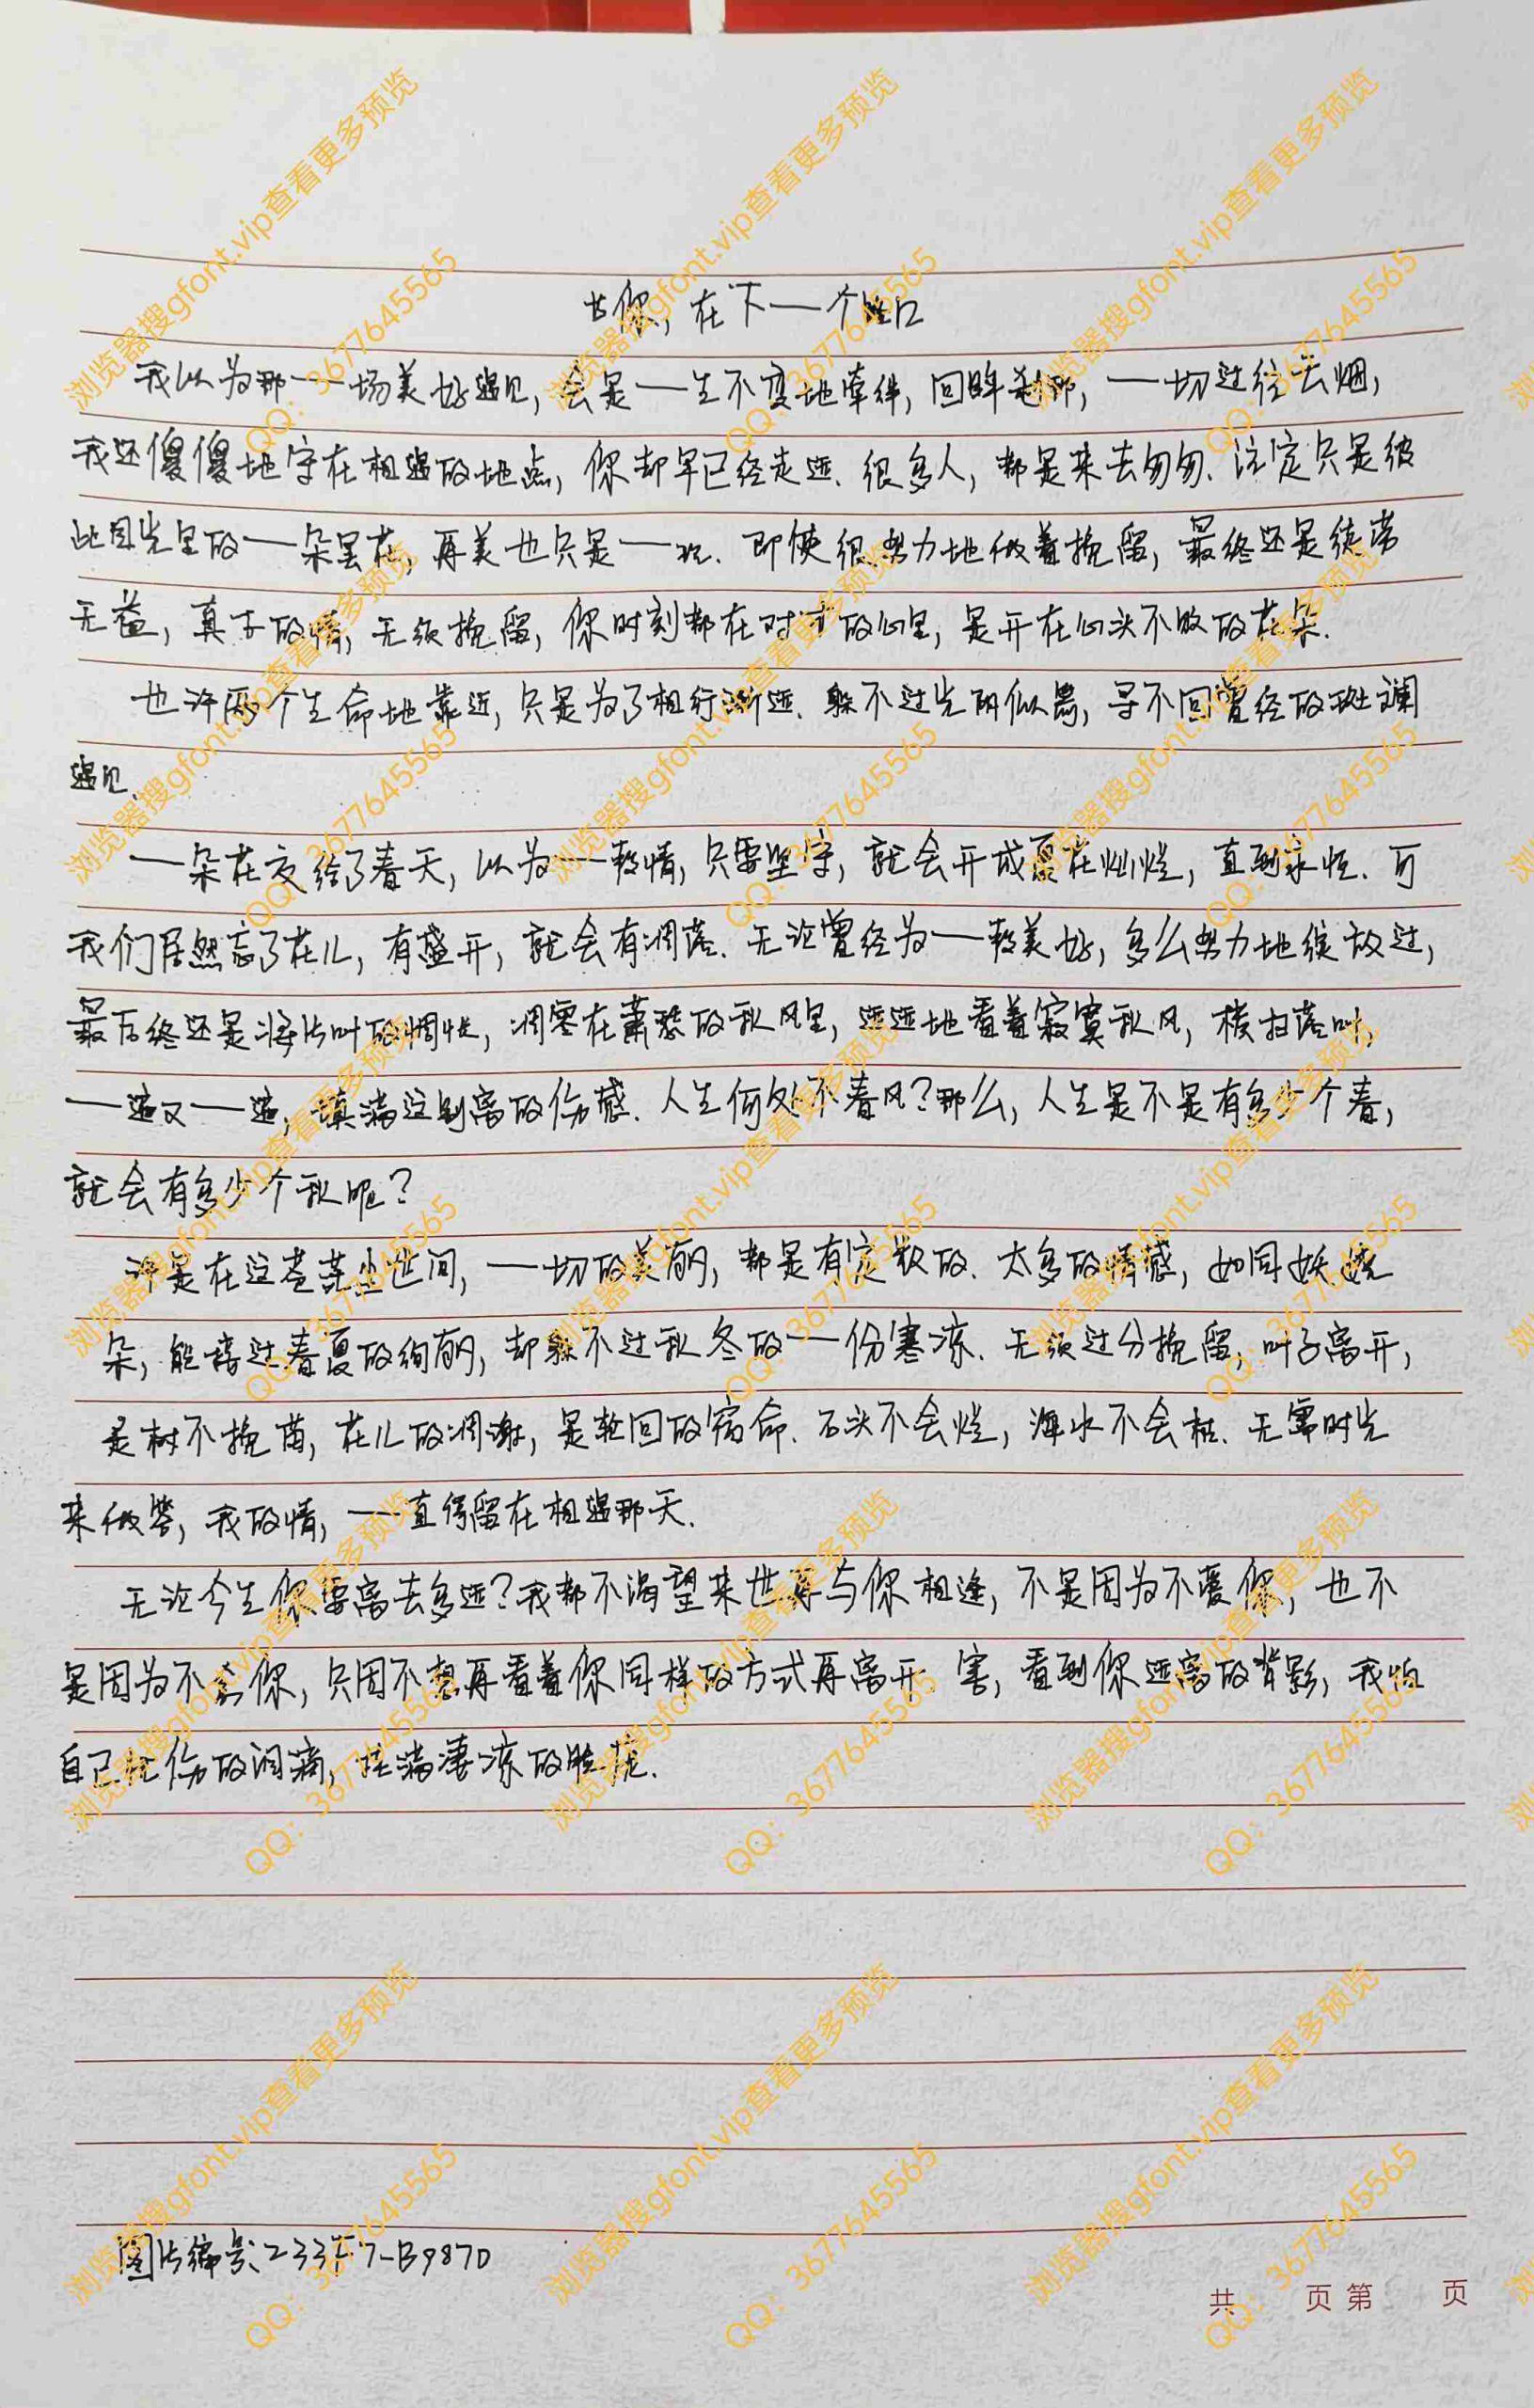 你,在下一个路口
我以为那一场美好遇见,会是一生不变地牵绊,回眸刹那,一切过往云烟,
我还傻傻地守在相遇的地点,你却早已经走远.很多人,都是来去匆匆.注定只是彼
此目光里的一朵昙花,再美也只是一现.即使很努力地做着挽留,最终还是徒劳
无益,真正的情,无须挽留,你时刻都在对方的心里,是开在心头不败的花朵.
也许两个生命地靠近,只是为了相行渐远.躲不过光阴似,寻不回曾经的斑斓
遇见.
一朵花交给了春天,以为一段情,只要坚守,就会开成夏花灿烂,直到永恒.可
我们居然忘了花儿,有盛开,就会有凋落.无论曾经为一段美好,多么努力地绽放过,
最后终还是将片叶的惆怅,凋零在萧瑟的秋风里,远远地看着寂寞秋风,横扫落叶
一遍又一遍,填满这别离的伤感.人生何处不春风?那么,人生是不是有多少个春,
就会有多少个秋呢?
许是在这苍茫尘世间,一切的美丽,都是有定数的.太多的情感,如同妖娆
朵,能接过春夏的绚丽,却躲不过秋冬的一份寒凉.无须过分挽留,叶子离开,
是树不挽留,花儿的凋谢,是轮回的宿命.石头不会烂,海水不会枯.无需时光
来做答,我的情,一直停留在相遇那天.
无论今生你要离去多远?我都不渴望来世再与你相逢,不是因为不爱你,也不
是因为不念你,只因不想再看着你同样的方式再离开.害,看到你远离的背影,我怕
自己忧伤的泪滴,挂满凄凉的脸庞.
图片编号:233F7-B987D
共 页 第 页
浏览器搜gfont.vip查看更多预览
QQ:3677645565